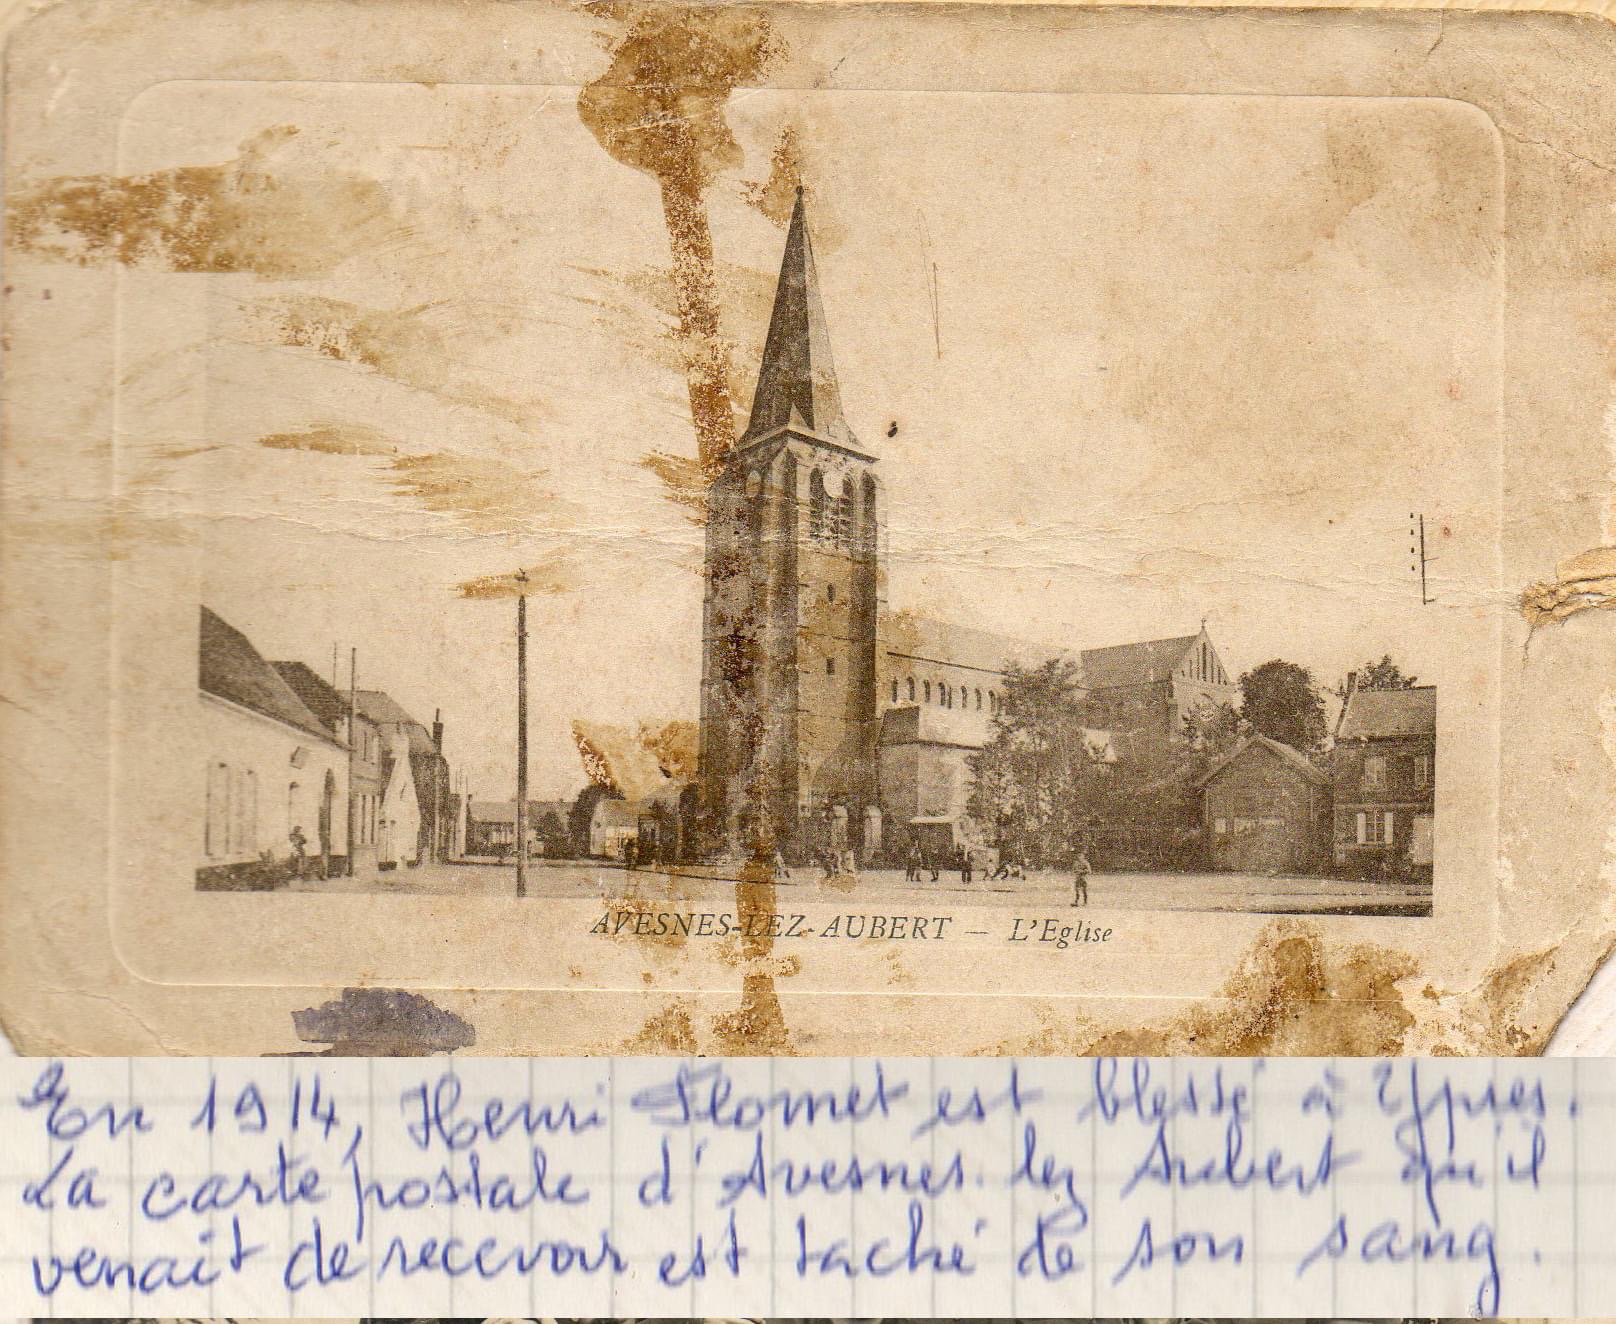 AVESNES-LEZ-AUBERT — L'Eglise
En 1914, Henri Flomet est blessé à Ypres.
La carte postale d'Avesnes-lez Aubert qu'il
venait de recevoir est taché de son sang.